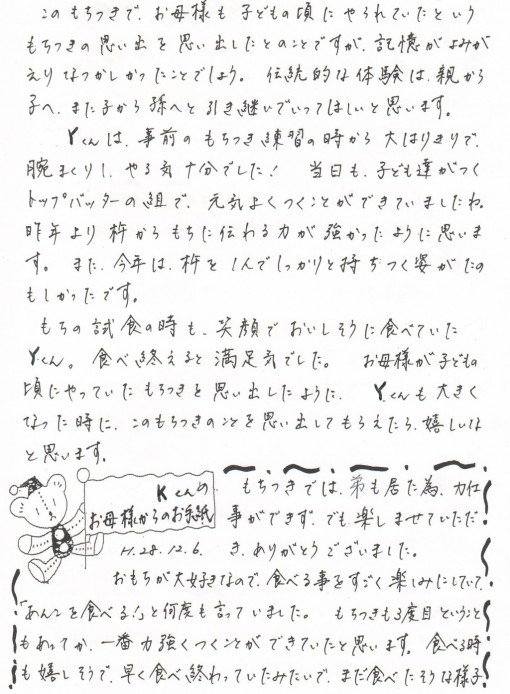 このもちつきで、お母様も子どもの頃にやられていたという
もちつきの思い出を思い出したとのことですが、記憶がよみが
えりなつかしかったことでしょう。 伝統的な体験は、親から
子へ、また子から孫へと引き継いでいってほしいと思います。
Yくんは、事前のもちつき練習の時から大はりきりで、
腕まくりし、やる気十分でした！ 当日も、子ども達がつく
トップバッターの組で、元気よくつくことができていましたね。
昨年より杵からもちに伝わる力が強かったように思いま
す。 また、今年は、杵を1人でしっかりと持ちつく姿がたの
もしかったです。
もちの試食の時も、笑顔でおいしそうに食べていた
Yくん。食べ終えると満足気でした。 お母様が子どもの
頃にやっていたもちつきを思い出したように、 Yくんも大きく
なった時に、このもちつきのことを思い出してもらえたら、嬉しいな
と思います。
Kくんの
お母様からのお手紙
H.28.12.6.
もちつきでは、弟も居た為、力仕
事ができず、でも楽しませていただ
き、ありがとうございました。
おもちが大好きなので、食べる事をすごく楽しみにしていて、
「あんこを食べる！」と何度も言っていました。 もちつきも3度目ということ
もあってか、一番力強くつくことができていたと思います。食べる時
も嬉しそうで、早く食べ終わっていたみたいで、まだ食べたそうな様子